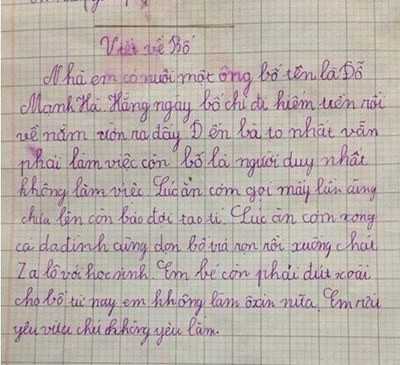 Viết về Bố
Nhà em có nuôi một ông bố tên là Đỗ
Mạnh Hà. Hằng ngày bố chỉ đi kiếm uốn rồi
về nằm ườn ra đấy Đến bà to nhất vẫn
phải làm việc còn bố là người duy nhất
không làm việc Lúc ăn cơm gọi mấy lần cũng
chưa lên còn bảo đợi tao tí. Lúc ăn cơm xong
cả dađình cũng dọn bố và nọn rồi xuống chát
Za lô với học sinh Em bé còn phải đút xoài
cho bố từ nay em không làm ôxin nữa. Em rừi
yêu vừa chứ không yêu lắm.